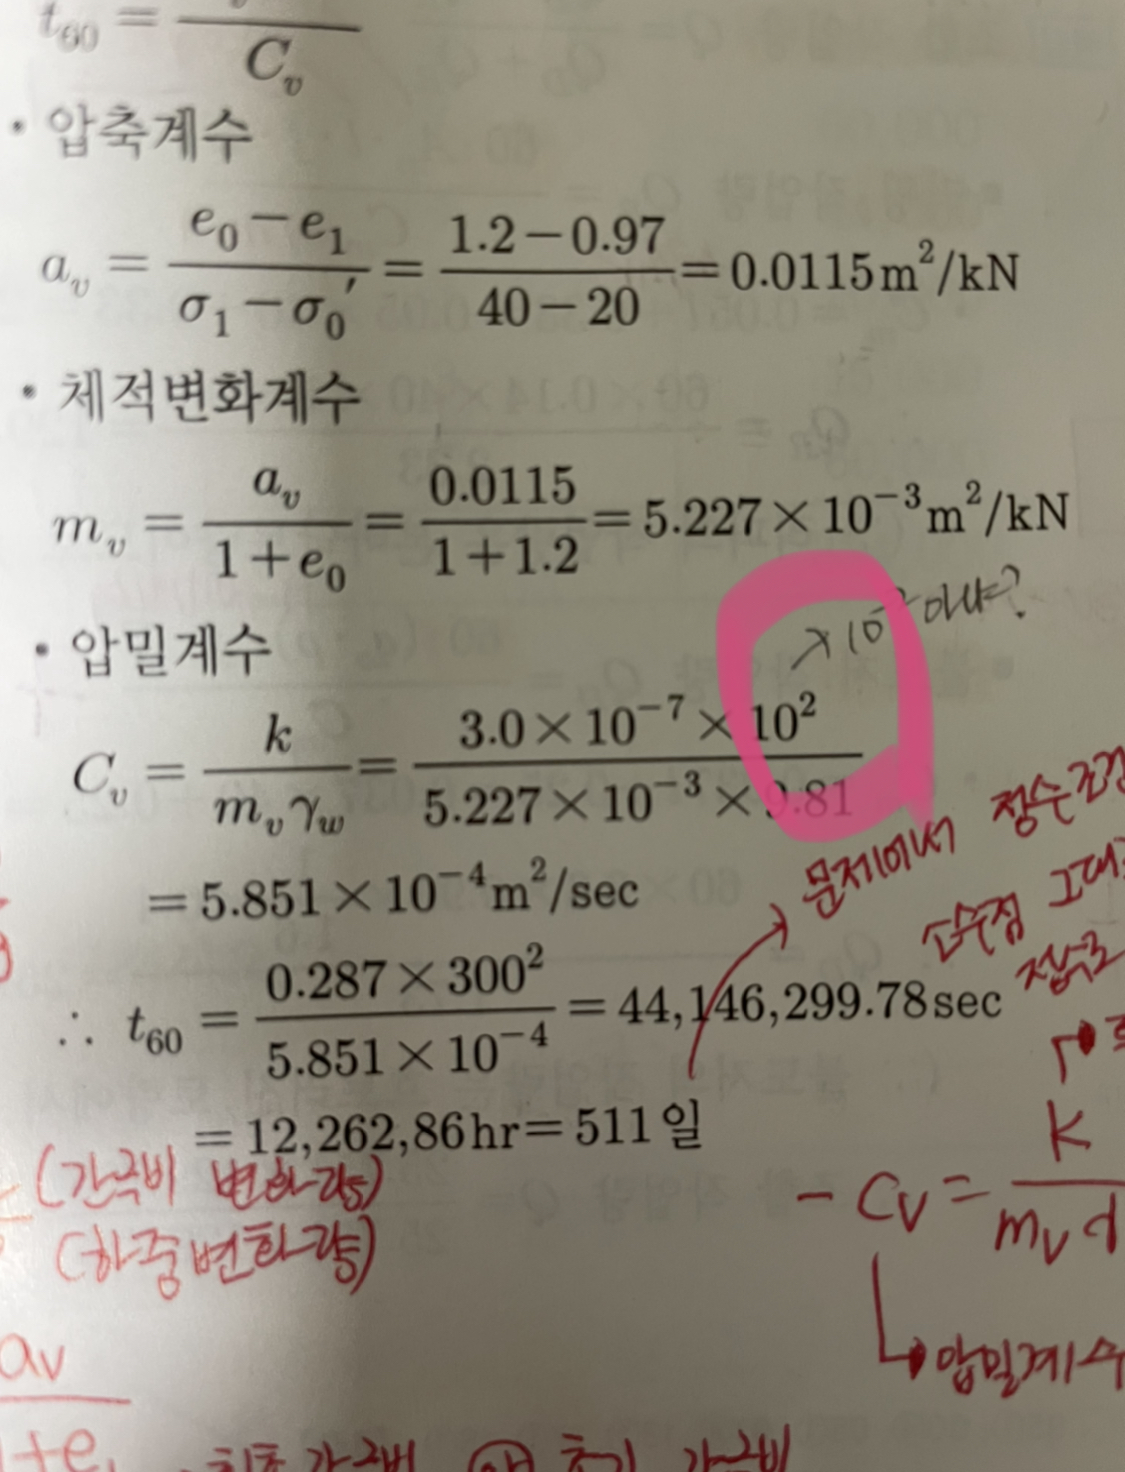 t₆₀ = ─── / C_v
• 압축계수
a_v = (e₀−e₁)/(σ₁−σ₀′) = (1.2−0.97)/(40−20) = 0.0115m²/kN
• 체적변화계수
m_v = a_v/(1+e₀) = 0.0115/(1+1.2) = 5.227×10⁻³m²/kN
아냐?
• 압밀계수
C_v = k/(m_v γ_w) = (3.0×10⁻⁷×10²)/(5.227×10⁻³×9.81)
문제에서
= 5.851×10⁻⁴m²/sec
∴ t₆₀ = (0.287×300²)/(5.851×10⁻⁴) = 44,146,299.78sec
= 12,262,86hr= 511일
(간극비 변화량)
(하중변화량)
- Cv = K/(mv
압밀계수
av
+e
간극비 초기 간극비